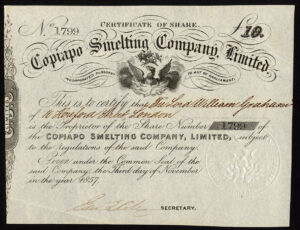 CERTIFICATE OF SHARE.
No. 1799
£10.
Copiapo Smelting Company, Limited,
INCORPORATED PURSUANT TO ACT OF PARLIAMENT.
This is to certify that The Lord William Graham
of Street London
is the Proprietor of the Share Number 1799 of
the COPIAPO SMELTING COMPANY, LIMITED, subject
to the Regulations of the said Company:
Given under the Common Seal of the
said Company, the Third day of November
in the year 1857.
SECRETARY.